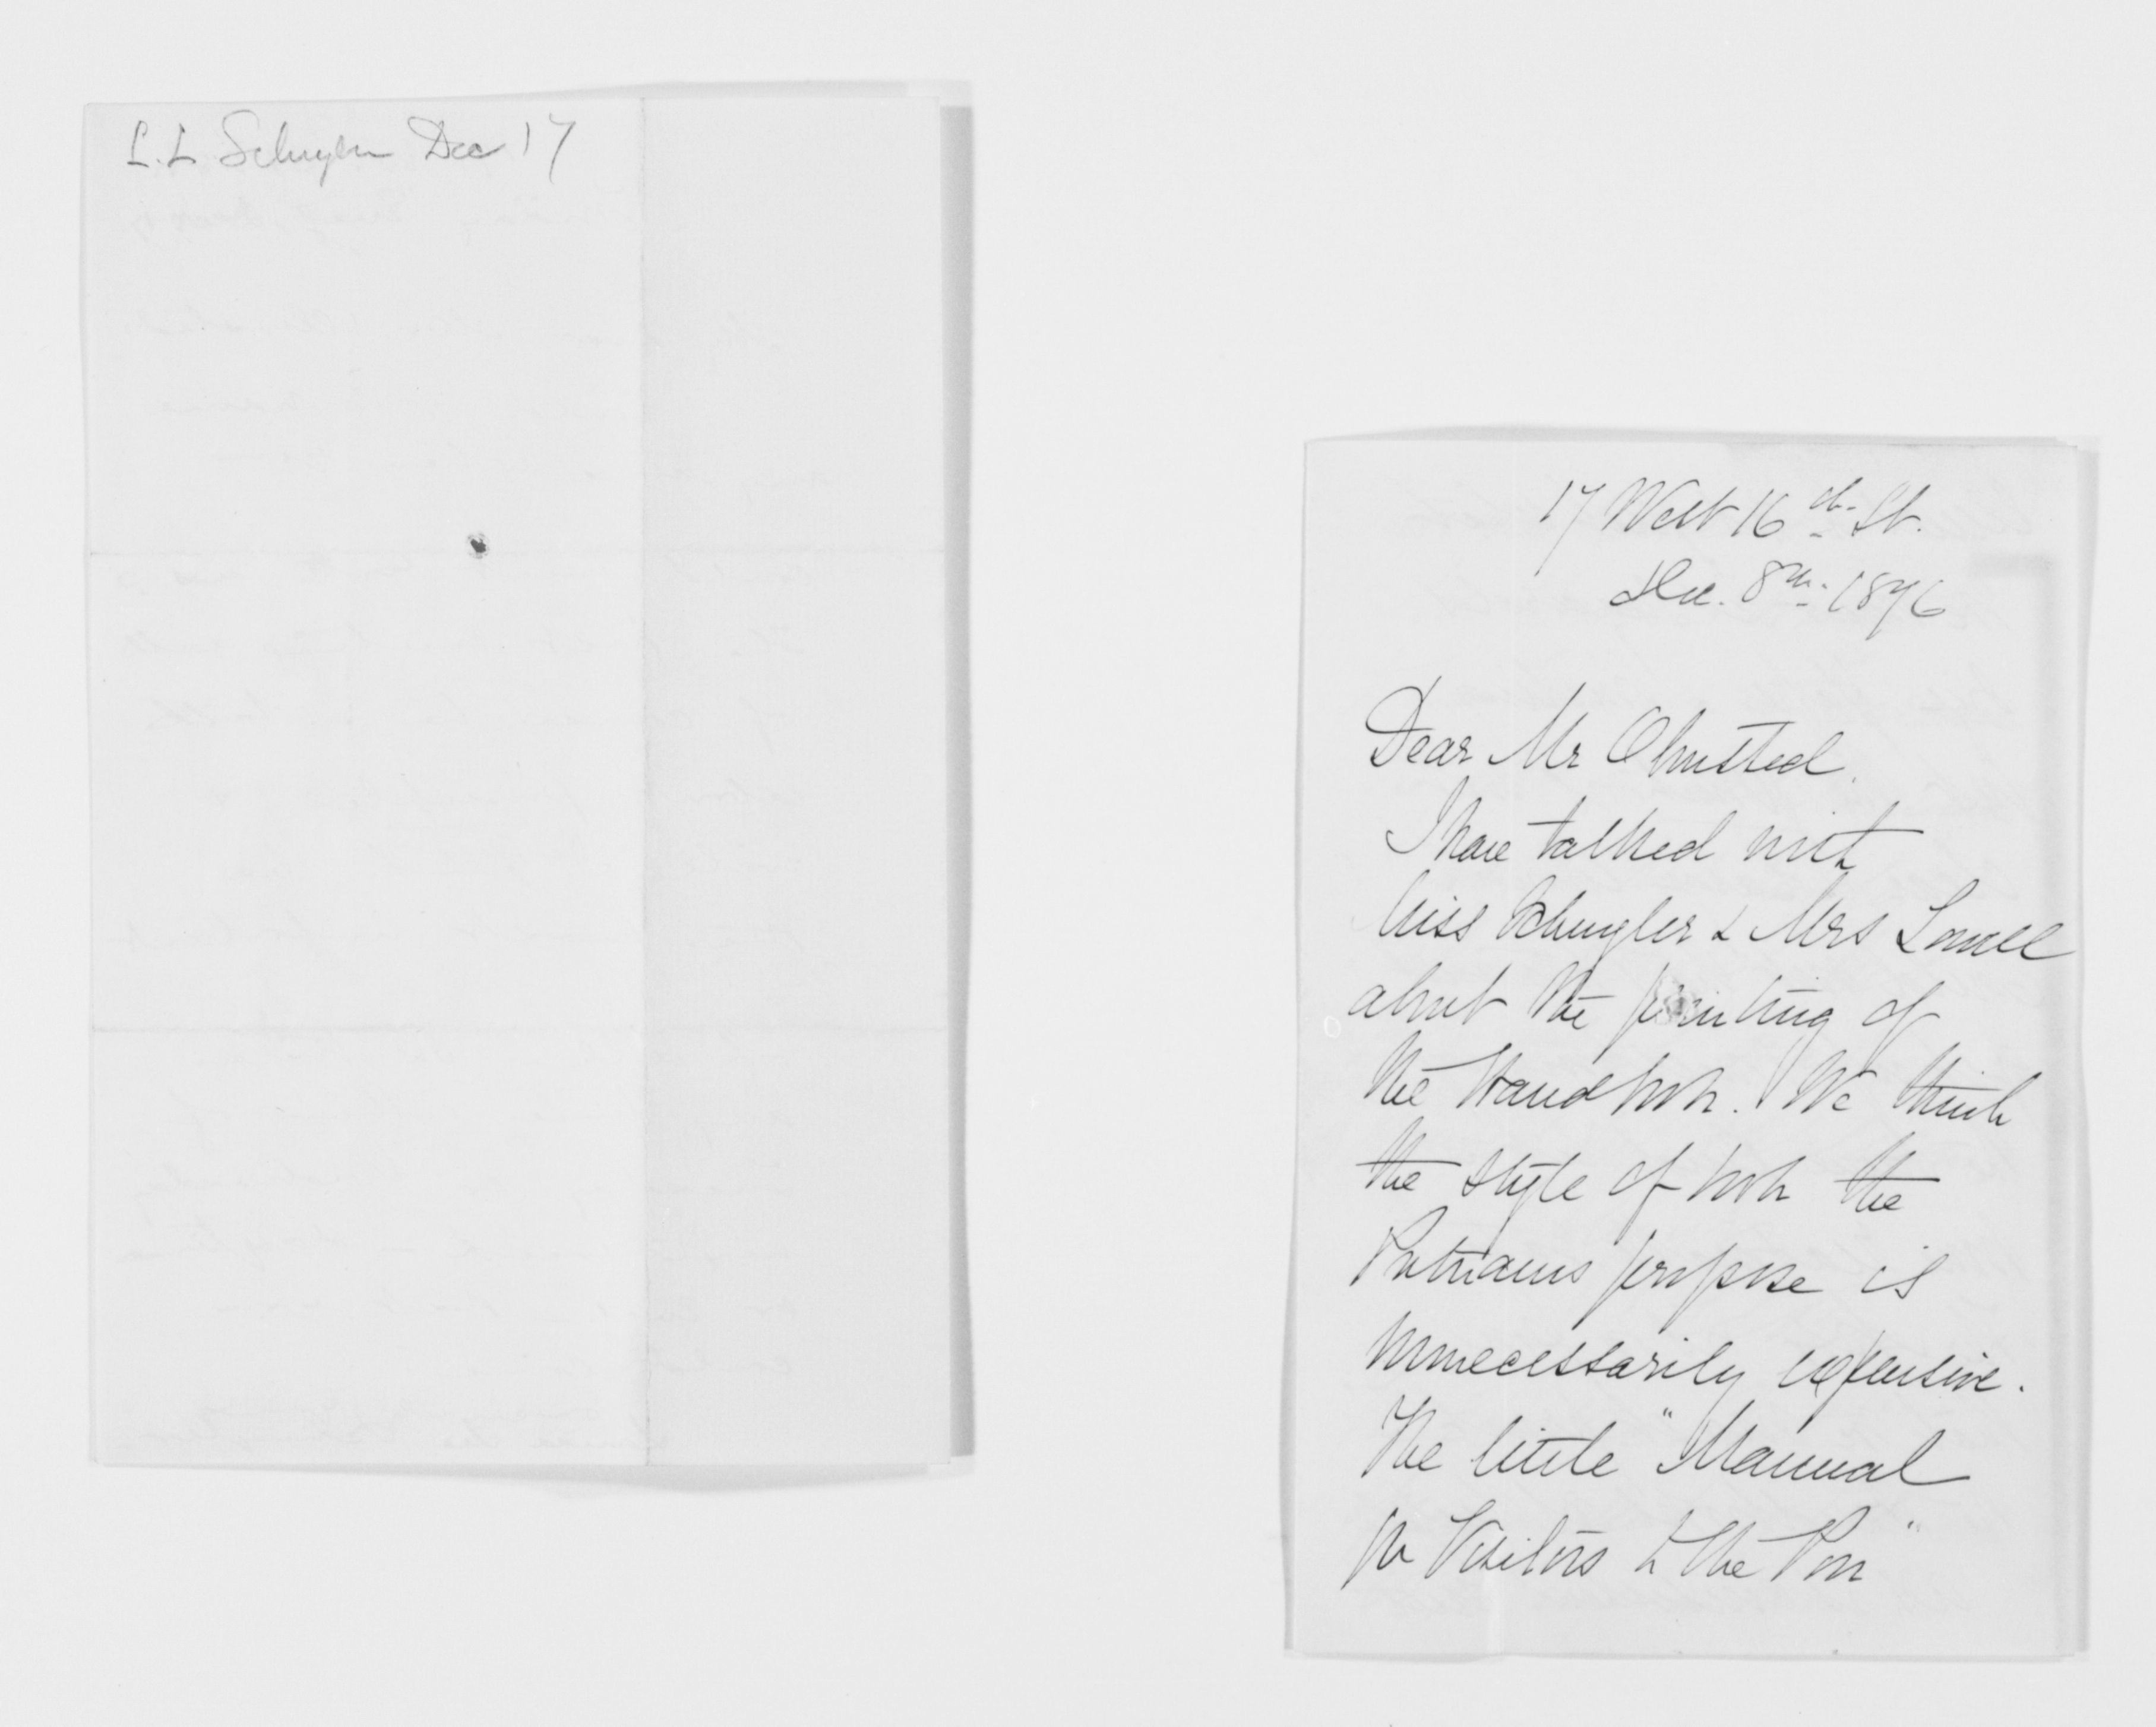 L. L. Schuyler Dec 17
17 West 16th St.
Dec. 8th 1876
Dear Mr Olmsted.
I have talked with
Miss Schuyler & Mrs Lowell
about the printing of
the Hand book. We think
the style of book the
Putnams propose is
unnecessarily expensive.
The little "Manual
for Visitors to the Poor"